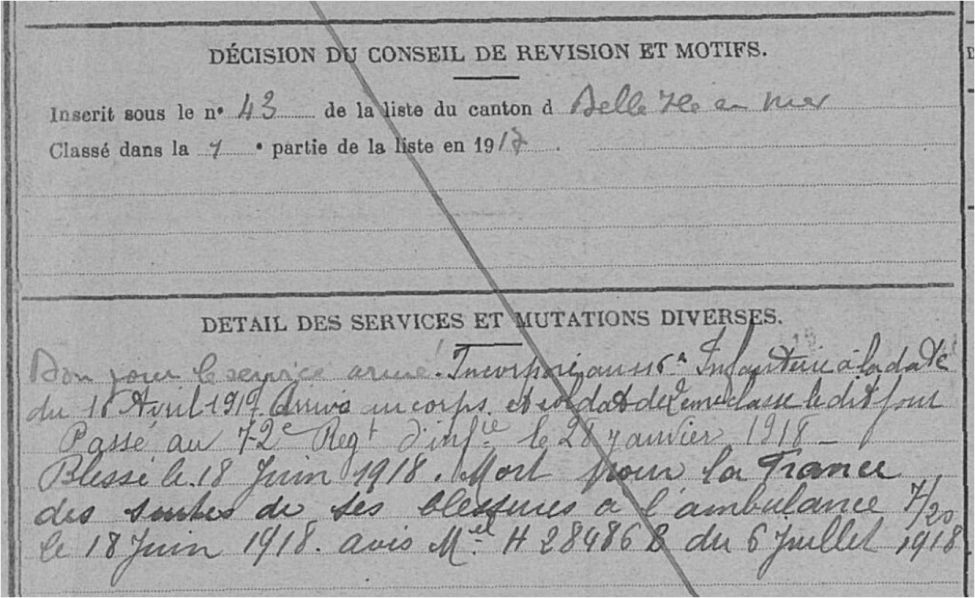 DÉCISION DU CONSEIL DE REVISION ET MOTIFS.
Inscrit sous le nº 43 de la liste du canton d Belle Ile en Mer
Classé dans la 1 e partie de la liste en 1917.
DETAIL DES SERVICES ET MUTATIONS DIVERSES.
Bon pour le service armé. Incorporé au 116e Infanterie à la date
du 18 Avril 1917. Arrivé au corps et soldat de 2eme classe le dit jour
Passé au 72e Regt d'infie le 28 janvier 1918 –
Blessé le 18 Juin 1918. Mort pour la France
des suites de ses blessures à l'ambulance 7/20
le 18 Juin 1918. avis Mel H 28486 B du 6 Juillet 1918